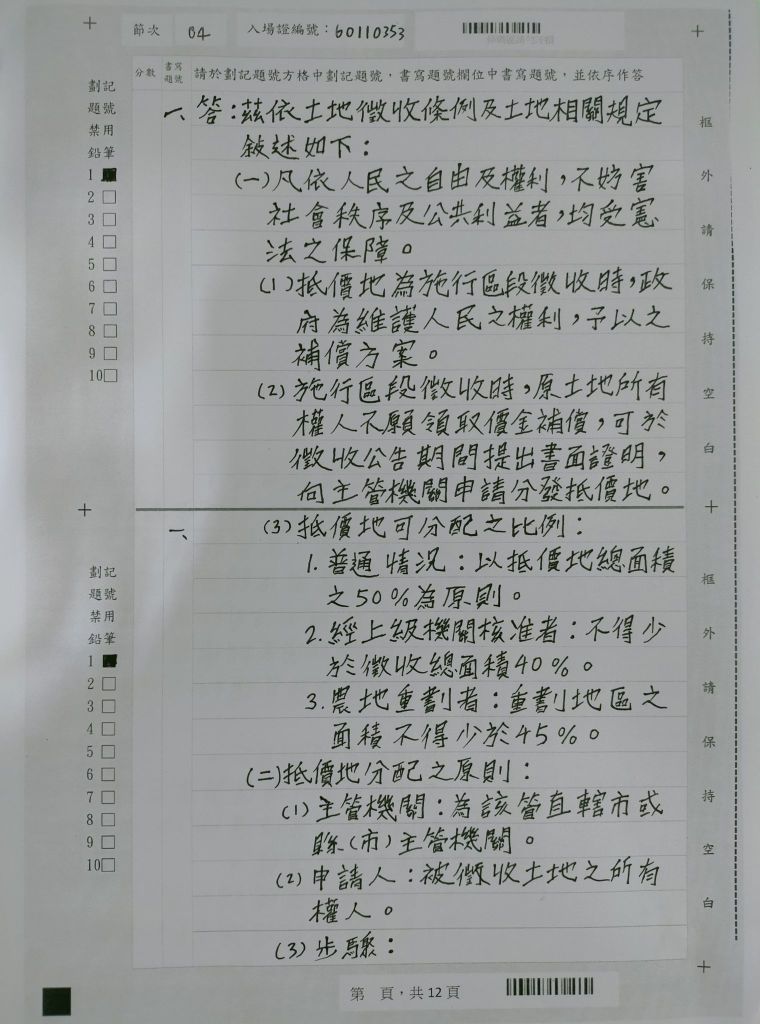 節次 04 入場證編號：60110353
分數 書寫題號 請於劃記題號方格中劃記題號，書寫題號欄位中書寫題號，並依序作答
劃記
題號
禁用
鉛筆
1
2
3
4
5
6
7
8
9
10
一、答：茲依土地徵收條例及土地相關規定
敍述如下：
(一)凡依人民之自由及權利，不妨害
社會秩序及公共利益者，均受憲
法之保障。
(1)抵價地為施行區段徵收時，政
府為維護人民之權利，予以之
補償方案。
(2)施行區段徵收時，原土地所有
權人不願領取價金補償，可於
徵收公告期間提出書面證明，
向主管機關申請分發抵價地。
框
外
請
保
持
空
白
劃記
題號
禁用
鉛筆
1
2
3
4
5
6
7
8
9
10
一、(3)抵價地可分配之比例：
1.普通情況：以抵價地總面積
之50%為原則。
2.經上級機關核准者：不得少
於徵收總面積40%。
3.農地重劃者：重劃地區之
面積不得少於45%。
(二)抵價地分配之原則：
(1)主管機關：為該管直轄市或
縣(市)主管機關。
(2)申請人：被徵收土地之所有
權人。
(3)步驟：
框
外
請
保
持
空
白
第 頁，共12頁